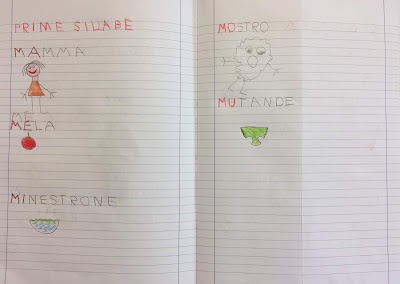 PRIME SILLABE
MAMMA
MELA
MINESTRONE
MOSTRO
MUTANDE